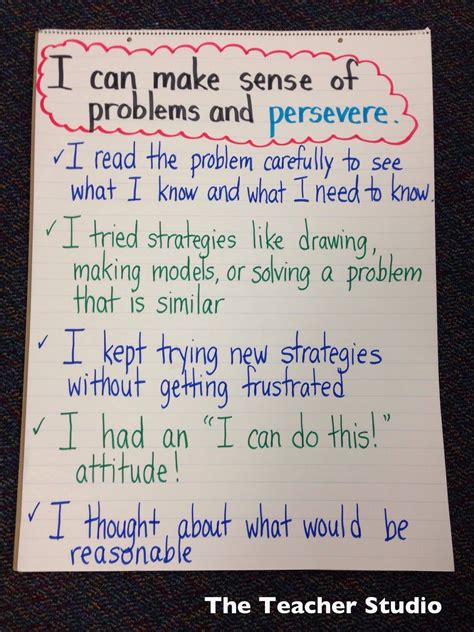 I can make sense of
problems and persevere.
✓I read the problem carefully to see
what I know and what I need to know.
✓I tried strategies like drawing,
making models, or solving a problem
that is similar
✓I kept trying new strategies
without getting frustrated
✓I had an "I can do this!"
attitude!
✓I thought about what would be
reasonable
The Teacher Studio